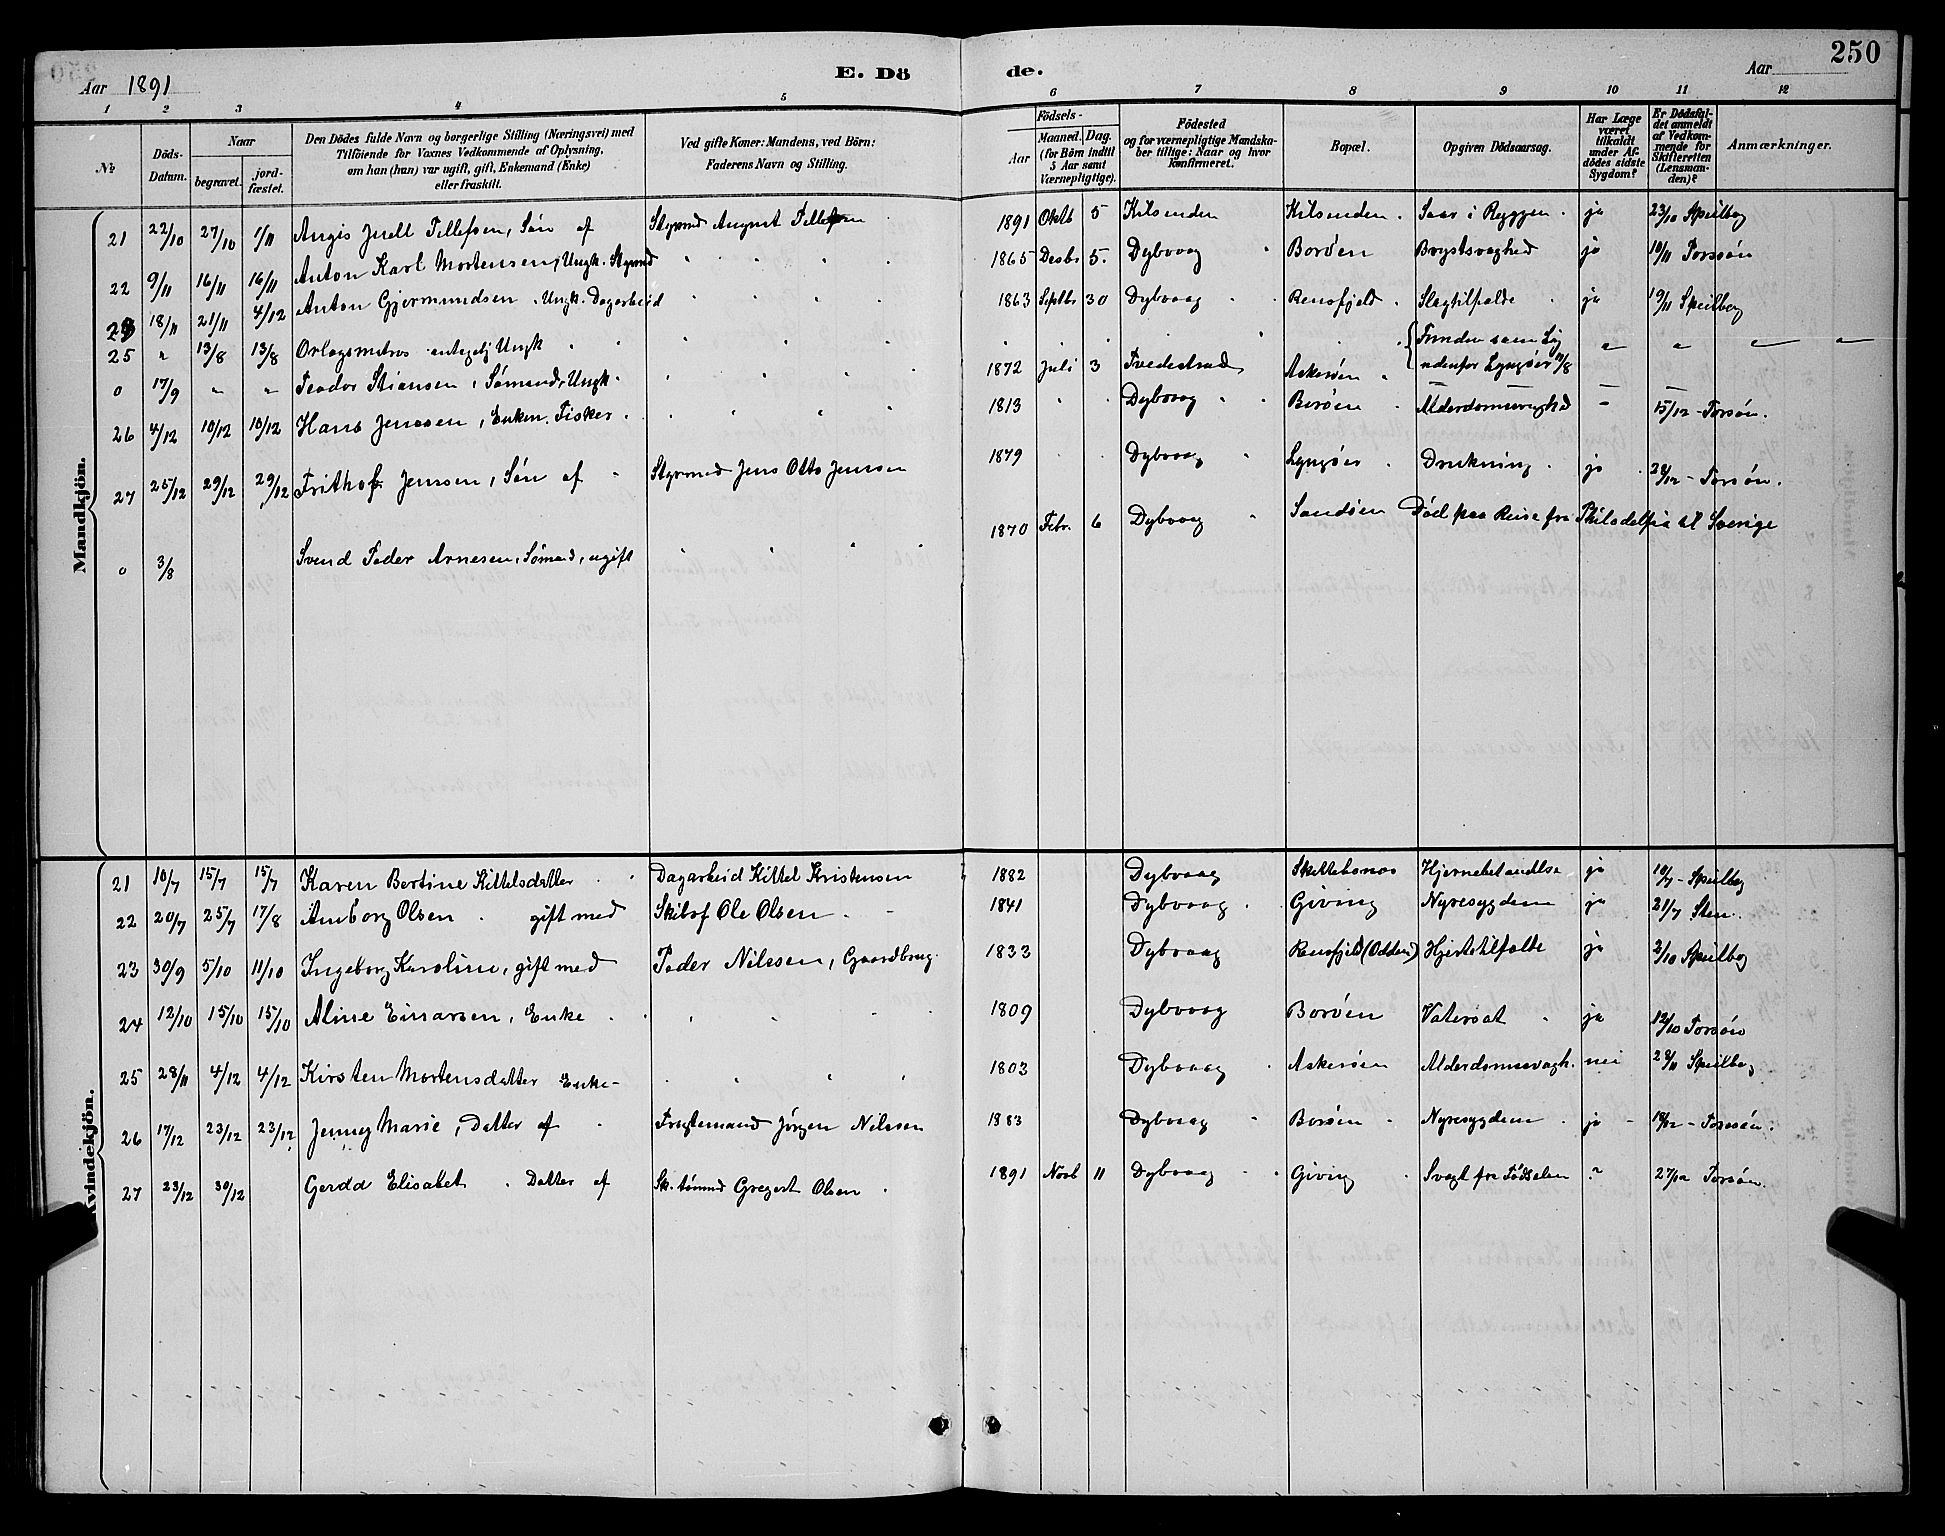 250
Aar 1891
E. Dö de.
Aar
1 2 3 4 5 6 7 8 9 10 11 12
№
Döds-Datum.
Naar
begravet.
jord-fæstet.
Den Dödes fulde Navn og borgerlige Stilling (Næringsvei) med
Tilföiende for Voxnes Vedkommende af Oplysning,
om han (hun) var ugift, gift, Enkemand (Enke)
eller fraskilt.
Ved gifte Koner: Mandens, ved Börn:
Faderens Navn og Stilling.
Födsels-
Aar
Maaned. Dag.
(for Börn indtil
5 Aar samt
Værnepligtige).
Födested
og for værnepligtige Mandska-
ber tillige: Naar og hvor
konfirmeret.
Bopæl.
Opgiven Dödsaarsag.
Har Læge
været
tilkaldt
under Af-
dödes sidste
Sygdom?
Er Dödsfal-
det anmeldt
af Vedkom-
mende for
Skifteretten
(Lensman-
den)?
Anmærkninger.
Mandkjön.
21 22/10 27/10 1/11 Angis Juell Tellefsen, Søn af Styrmd August Tellefsen 1891 Oktb 5 Kilsunden Kilsunden Saar i Ryggen ja 23/10 Speilbg
22 9/11 16/11 16/11 Anton Karl Mortensen, Ungk. Styrmd 1865 Desbr 5. Dybvaag Borøen Brystsvaghed ja 10/11 Torsøn
23 18/11 21/11 4/12 Anton Gjermundsen Ungk. Dagarbeid 1863 Septbr 30 Dybvaag Rensfjeld Slagtilfælde ja 19/11 Speilberg
25 " 13/8 13/8 Orlogsmatros Ungk Funden som Lig
udenfor Lyngøer 11/8
0 17/9 " " Teodor Stiansen, Sømand, Ungk. 1872 Juli 3 Tvedestrand Askerøen
26 4/12 10/12 10/12 Hans Jenssen, Enkem. Fisker 1813 Dybvaag Borøen Alderdomssvaghed 15/12 - Torsøn.
27 25/12 29/12 29/12 Frithof Jenssen, Søn af Styrmd Jens Otto Jenssen 1879 Dybvaag Lyngøer Drukning ja 28/12 - Torsøn.
0 3/8 Svend Peder Arnesen, Sømand, ugift 1870 Febr. 6 Dybvaag Sandøen Død paa Reise fra Philadelfia til Sverige
Kvindekjön.
21 10/7 15/7 15/7 Karen Bertine Kittelsdatter Dagarbeid Kittel Kristensen 1882 Dybvaag Skettebonæs Hjernebetændelse ja 10/7 - Speilbg
22 20/7 25/7 17/8 Amborg Olsen gift med Skibsf Ole Olsen 1841 Dybvaag Giving Nyresygdom ja 21/7 Sten.
23 30/9 5/10 11/10 Ingeborg Karoline, gift med Peder Nilssen, Gaardbrug. 1833 Dybvaag Rensfjeld (Odden) Hjertetilfælde ja 2/10 Speilbg
24 12/10 15/10 15/10 Aline Einarsen, Enke 1809 Dybvaag Borøen Vatersot ja 12/10 Torsøn
25 28/11 4/12 4/12 Kirsten Mortensdatter Enke- 1803 Dybvaag Askerøen Alderdomssvagh. nei 28/11 Speilbg
26 17/12 23/12 23/12 Jenny Marie, Datter af Jørgen Nilssen 1883 Dybvaag Borøen Nyresygdom ja 18/12 - Torsøn.
27 23/12 30/12 Gerda Elisabet Datter af Sk. tømmd Gregert Olsen 1891 Novb 11 Dybvaag Giving Svagt fra Fødselen ? 27/12 Torsøn.